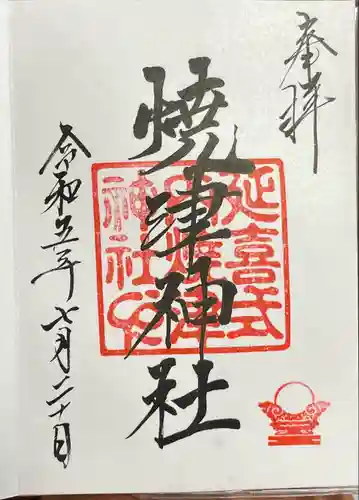 奉拝
焼津神社
延喜式
神社
令和五年七月二十日